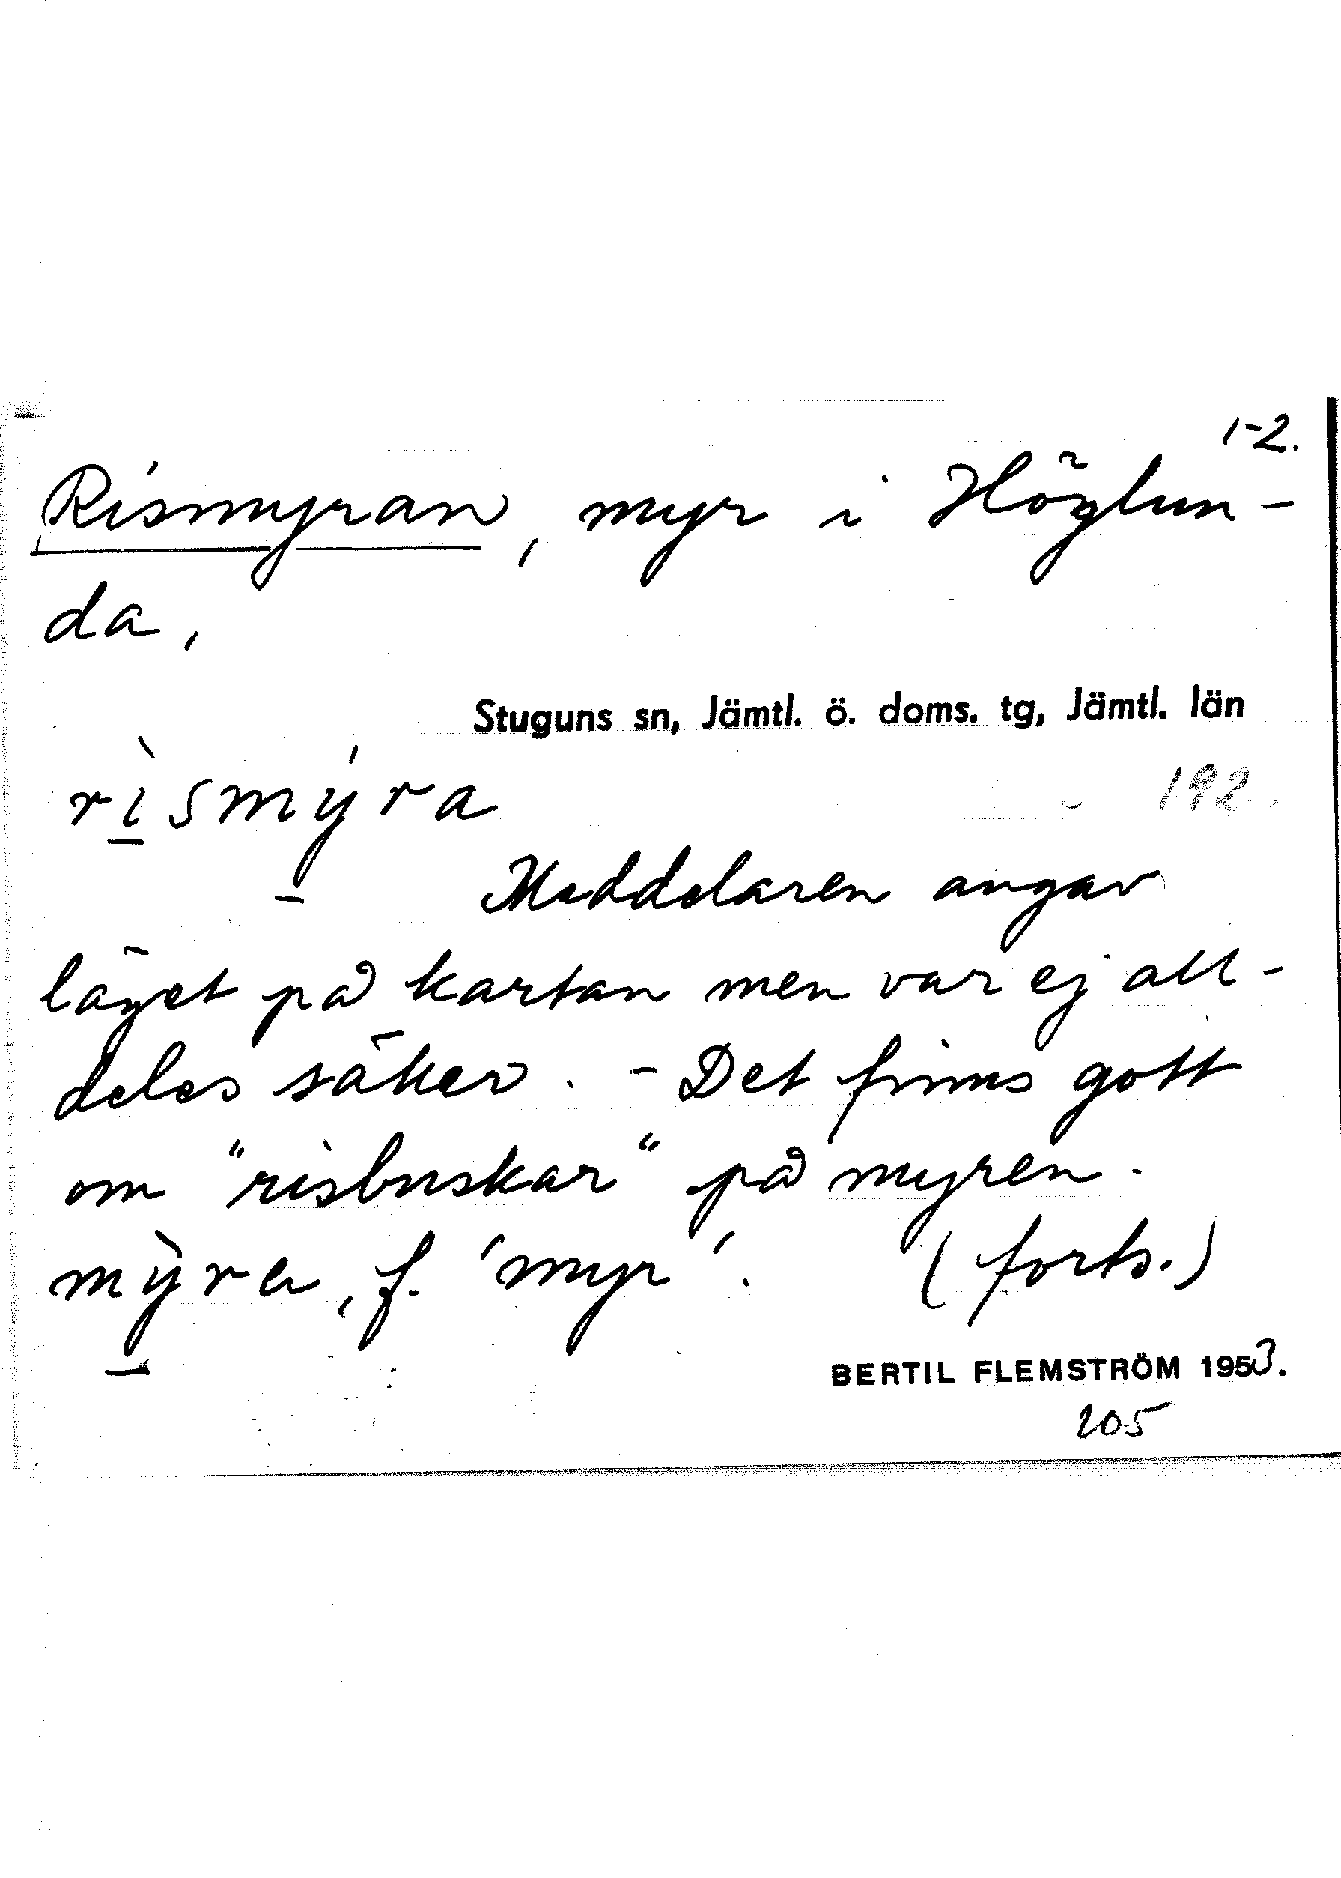 1-2.
Rismyran, myr i Höglun-
da,
Stuguns sn, Jämtl. ö. doms. tg, Jämtl. län
rìsmýra
192.
Meddelaren angav
läget på kartan men var ej all-
deles säker. - Det finns gott
om "risbuskar" på myren.
mỳra, f. 'myr'. (forts.)
BERTIL FLEMSTRÖM 1953.
205